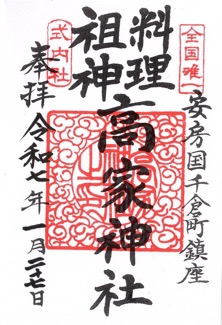 全国唯一
安房国千倉町鎮座
料理
祖神
高家神社
式内社
奉拝
令和七年一月二十七日